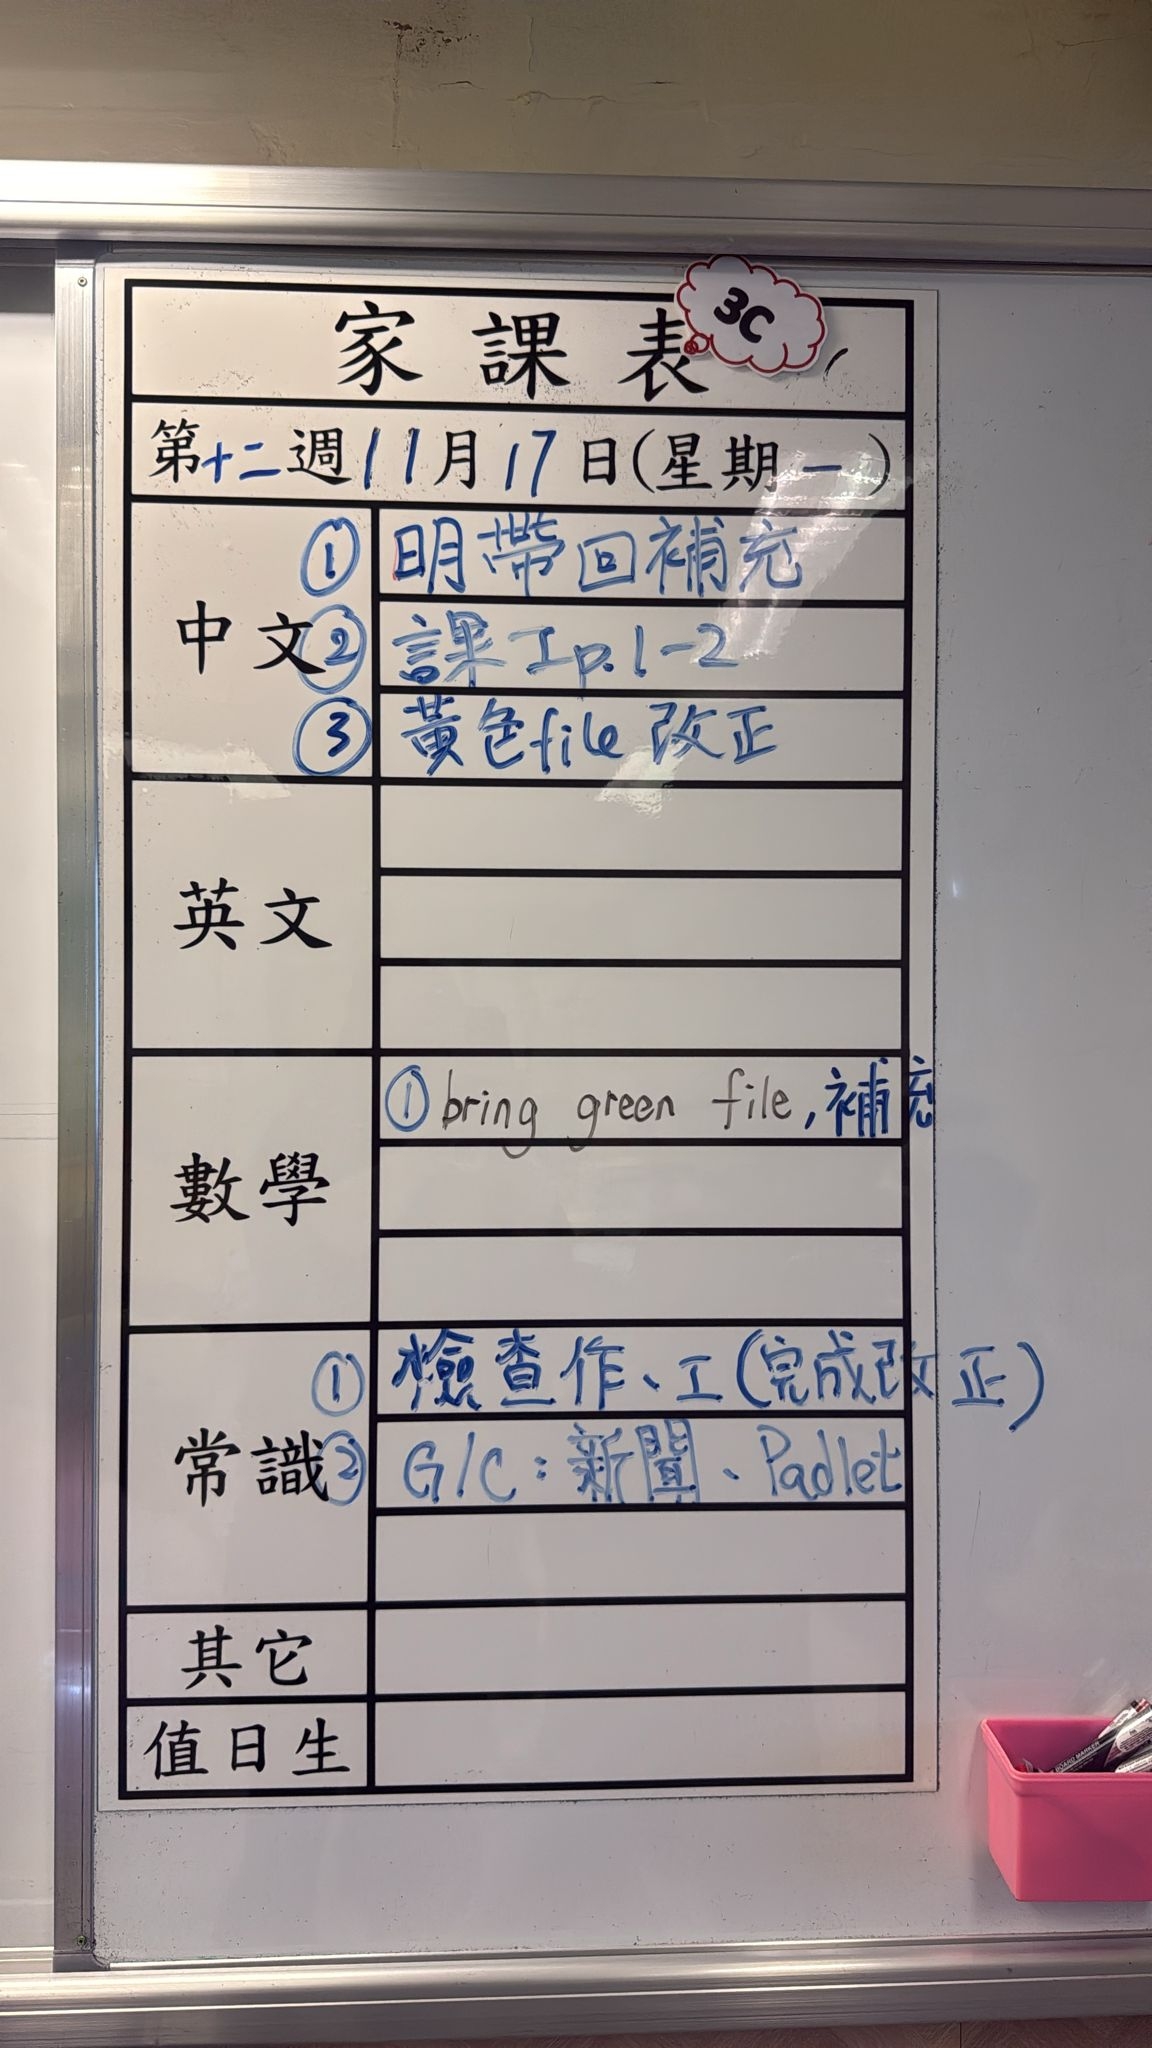 家課表
3C
第十二週11月17日(星期一)
中文
① 明帶回補充
② 課工p.1-2
③ 黃色file改正
英文
數學
① bring green file,補充
常識
① 檢查作、工(完成改正)
② G/C:新聞、Padlet
其它
值日生
BOARD MARKER